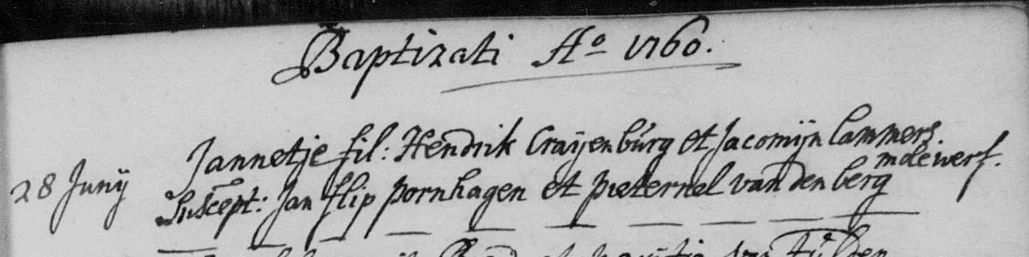 Baptizati Ao 1760.
28 Junij Jannetje fil: Hendrik Craijenburg et Jacomijn Lammers.
Suscept: Jan flip pornhagen et pieternel van den berg